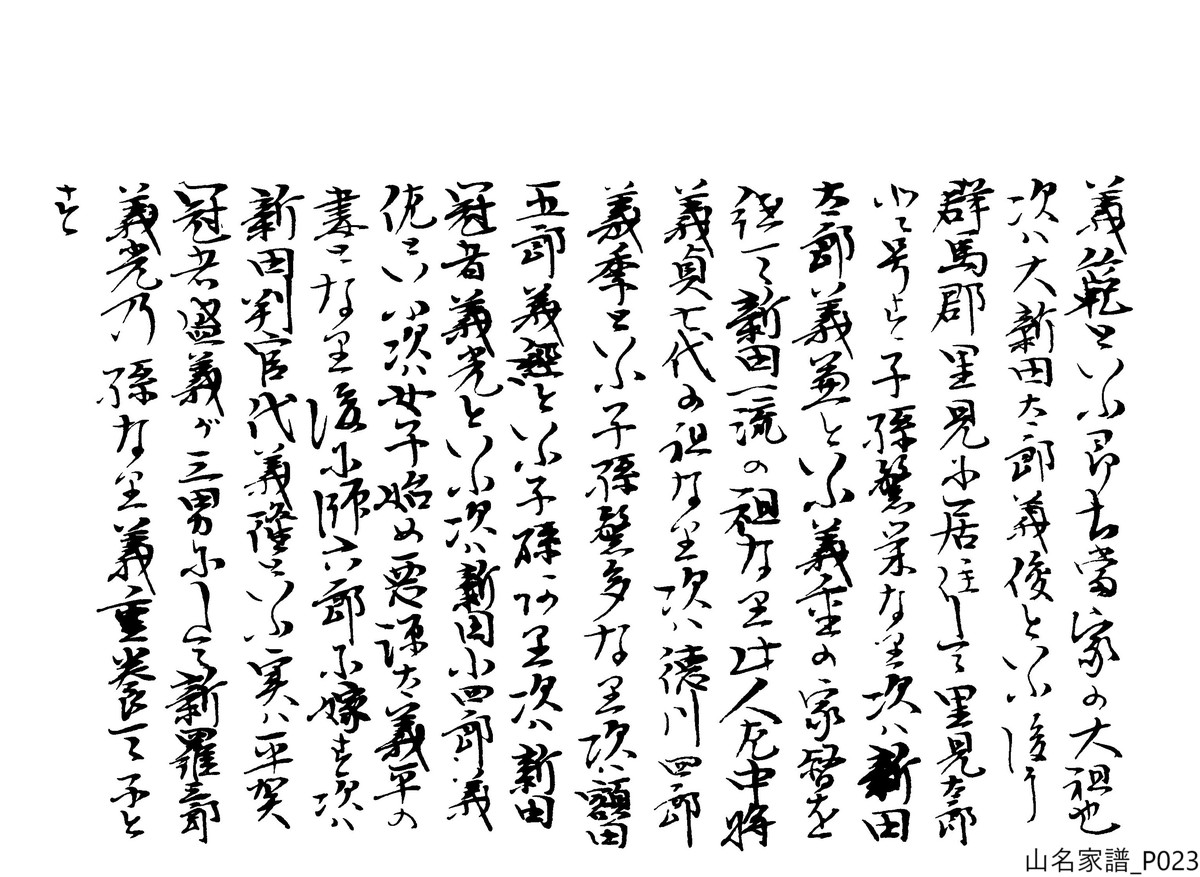 義範といふ即吉當家の大祖也
次ハ大新田太郎義俊といふ後に
群馬郡里見に居住して里見太郎
と号す子孫繁栄なり次ハ新田
太郎義兼といふ義重の家督を
継て新田一流の祖なり此人左中将
義貞七代の祖なり次ハ徳川四郎
義季といふ子孫繁多なり次ハ額田
五郎義経といふ子孫あり次ハ新田
冠者義光といふ次ハ新田小四郎義
佐といふ次ハ女子始め悪源太義平の
妻となり後に師六郎に嫁す次ハ
新田判官代義隆といふ実ハ平賀
冠者盛義が三男にして新羅三郎
義光乃孫なり義重養て子と
す
山名家譜_P023